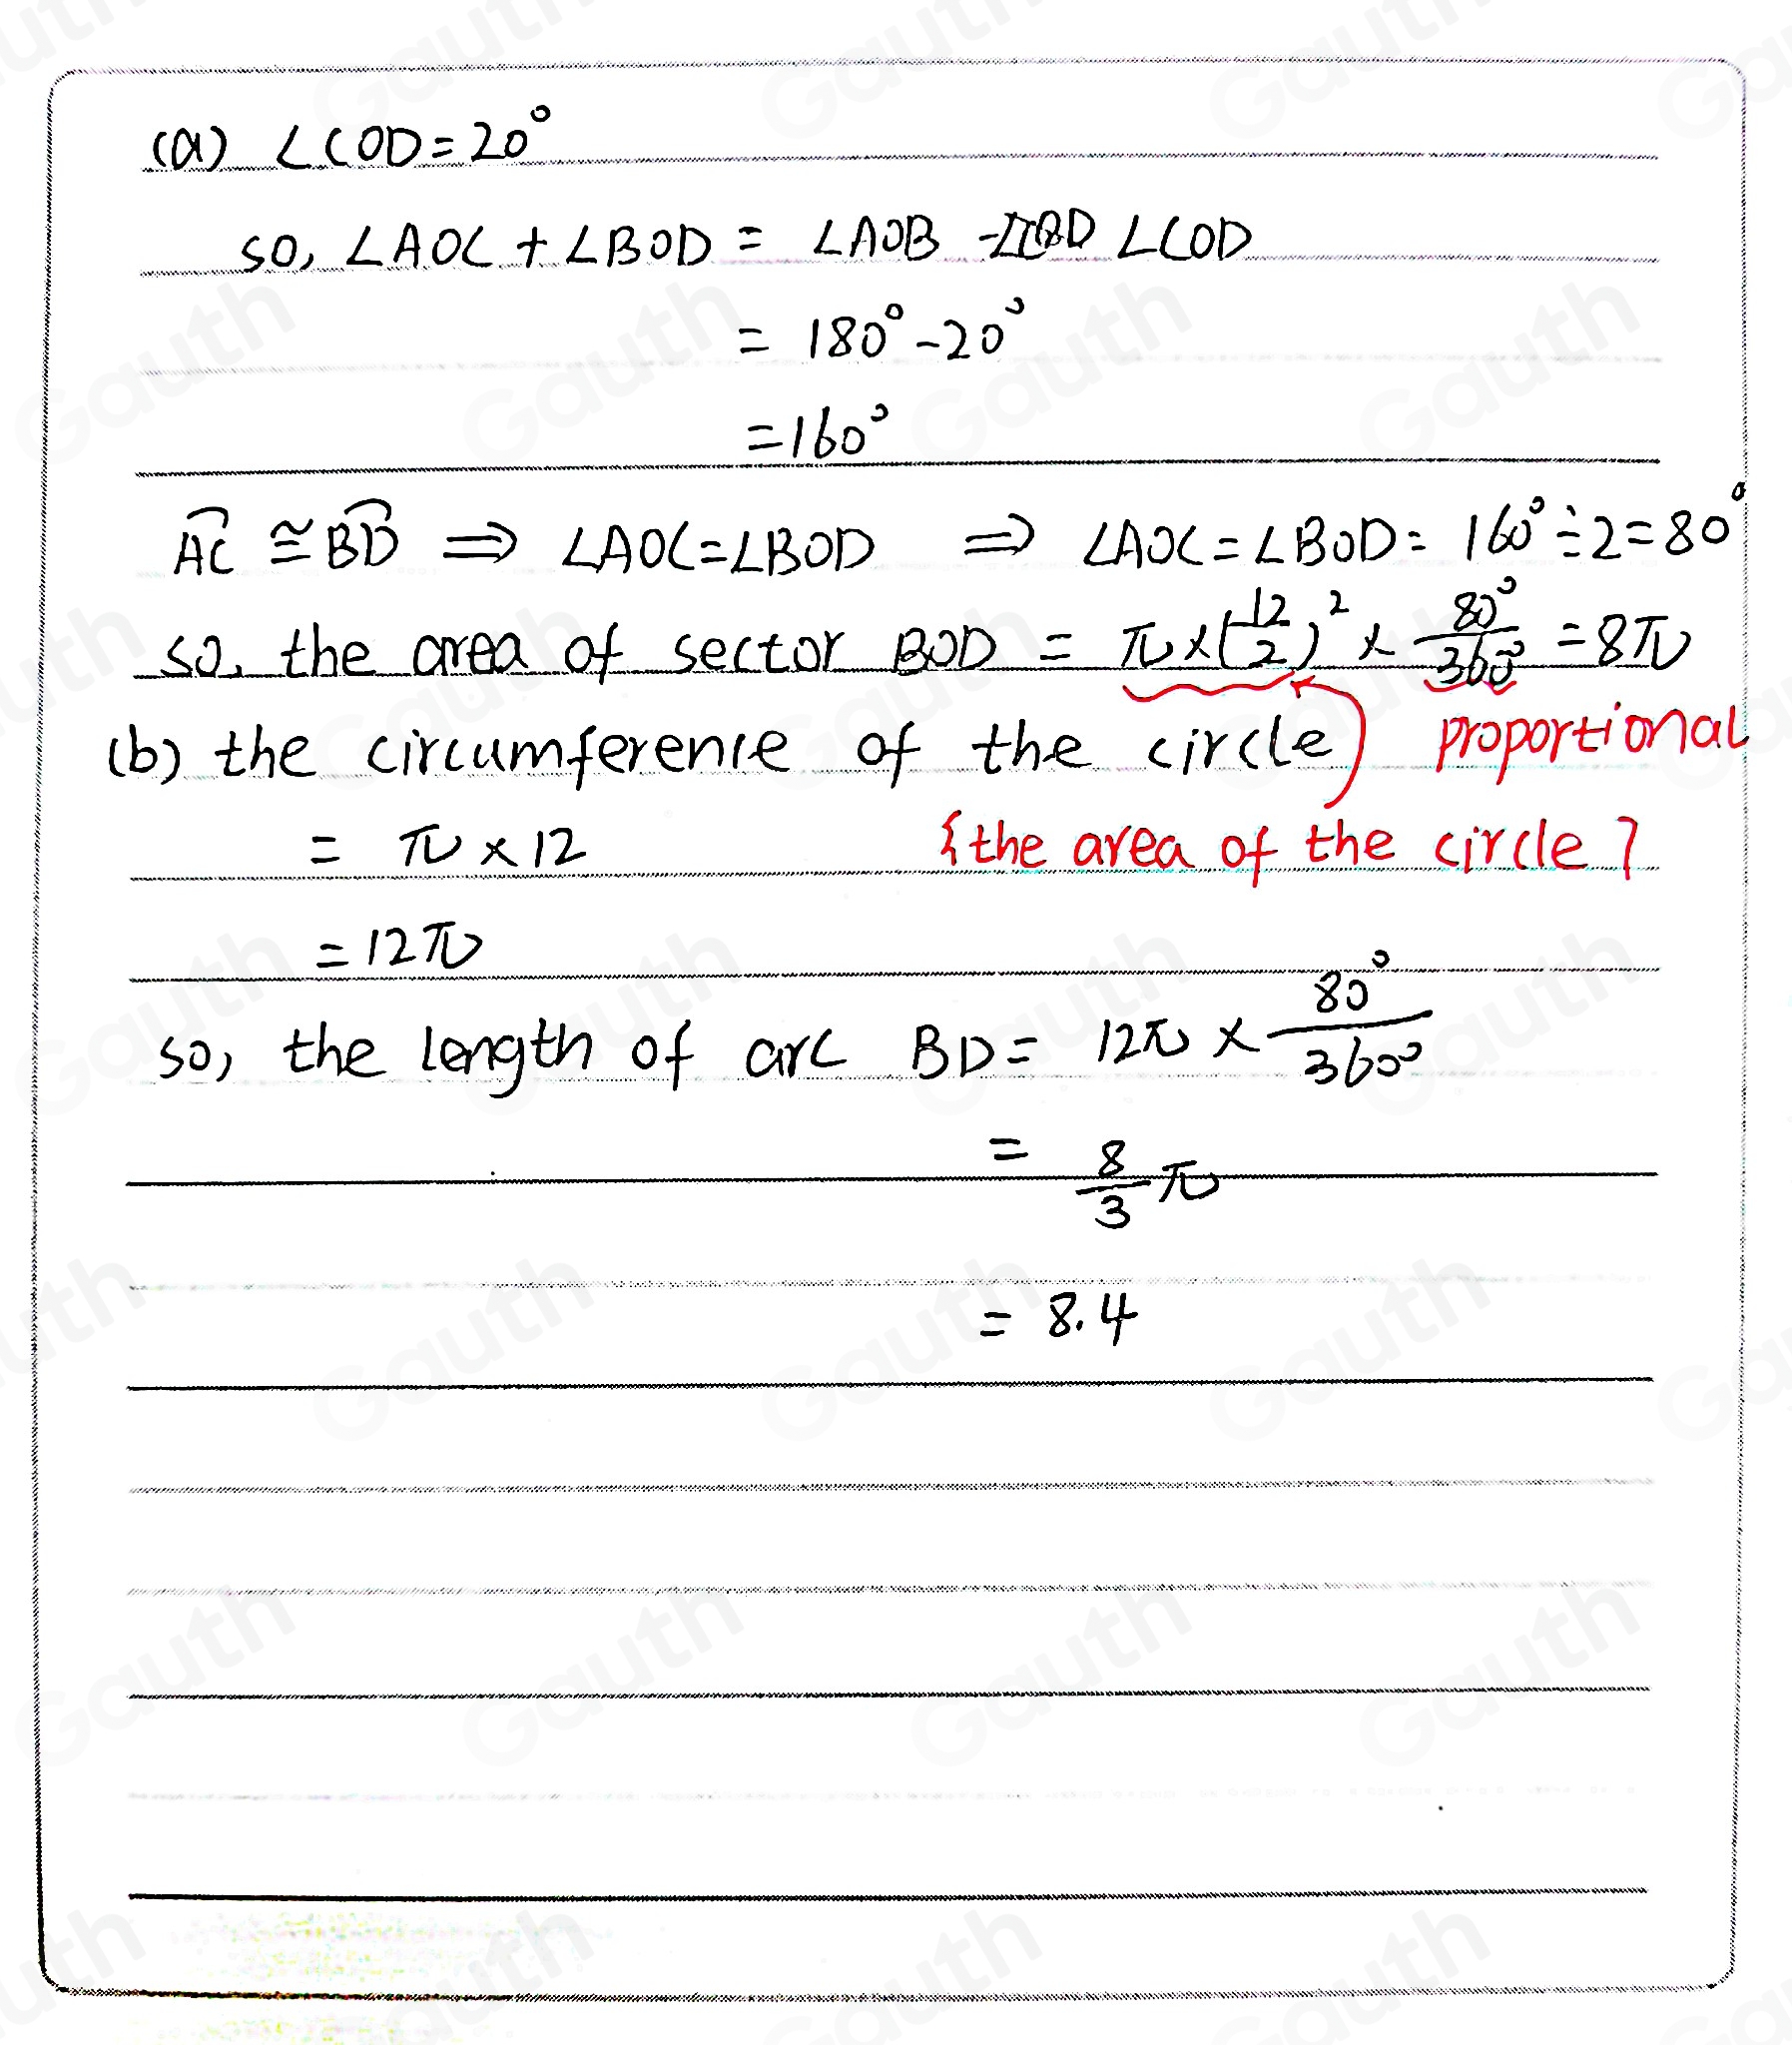 (a) ∠COD=20°
so, ∠AOC + ∠BOD = ∠AOB - ∠COD
= 180° - 20°
= 160°
A͡C ≅ B͡D ⇒ ∠AOC=∠BOD ⇒ ∠AOC=∠BOD= 160°÷2=80°
so, the area of sector BOD = π×(12/2)² × 80°/360° = 8π
(b) the circumference of the circle
proportional
= π × 12
{the area of the circle}
= 12π
so, the length of arc BD = 12π × 80°/360°
= 8/3 π
= 8.4
Gauth